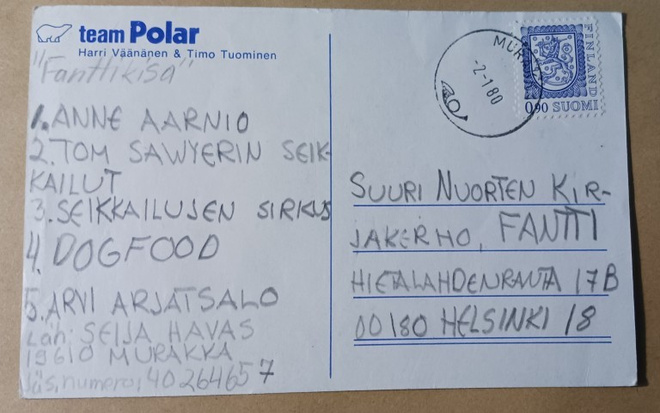 team Polar
Harri Väänänen & Timo Tuominen
"Fanttikisa"
1. ANNE AARNIO
2. TOM SAWYERIN SEIK-
KAILUT
3. SEIKKAILUJEN SIRKUS
4. DOGFOOD
5. ARVI ARJATSALO
Läh: SEIJA HAVAS
19610 MURAKKA
Jäs.numero: 40264657
-2-1 80
FINLAND
0,90 SUOMI
SUURI NUORTEN KIR-
JAKERHO, FANTTI
HIETALAHDENRANTA 17B
00180 HELSINKI 18